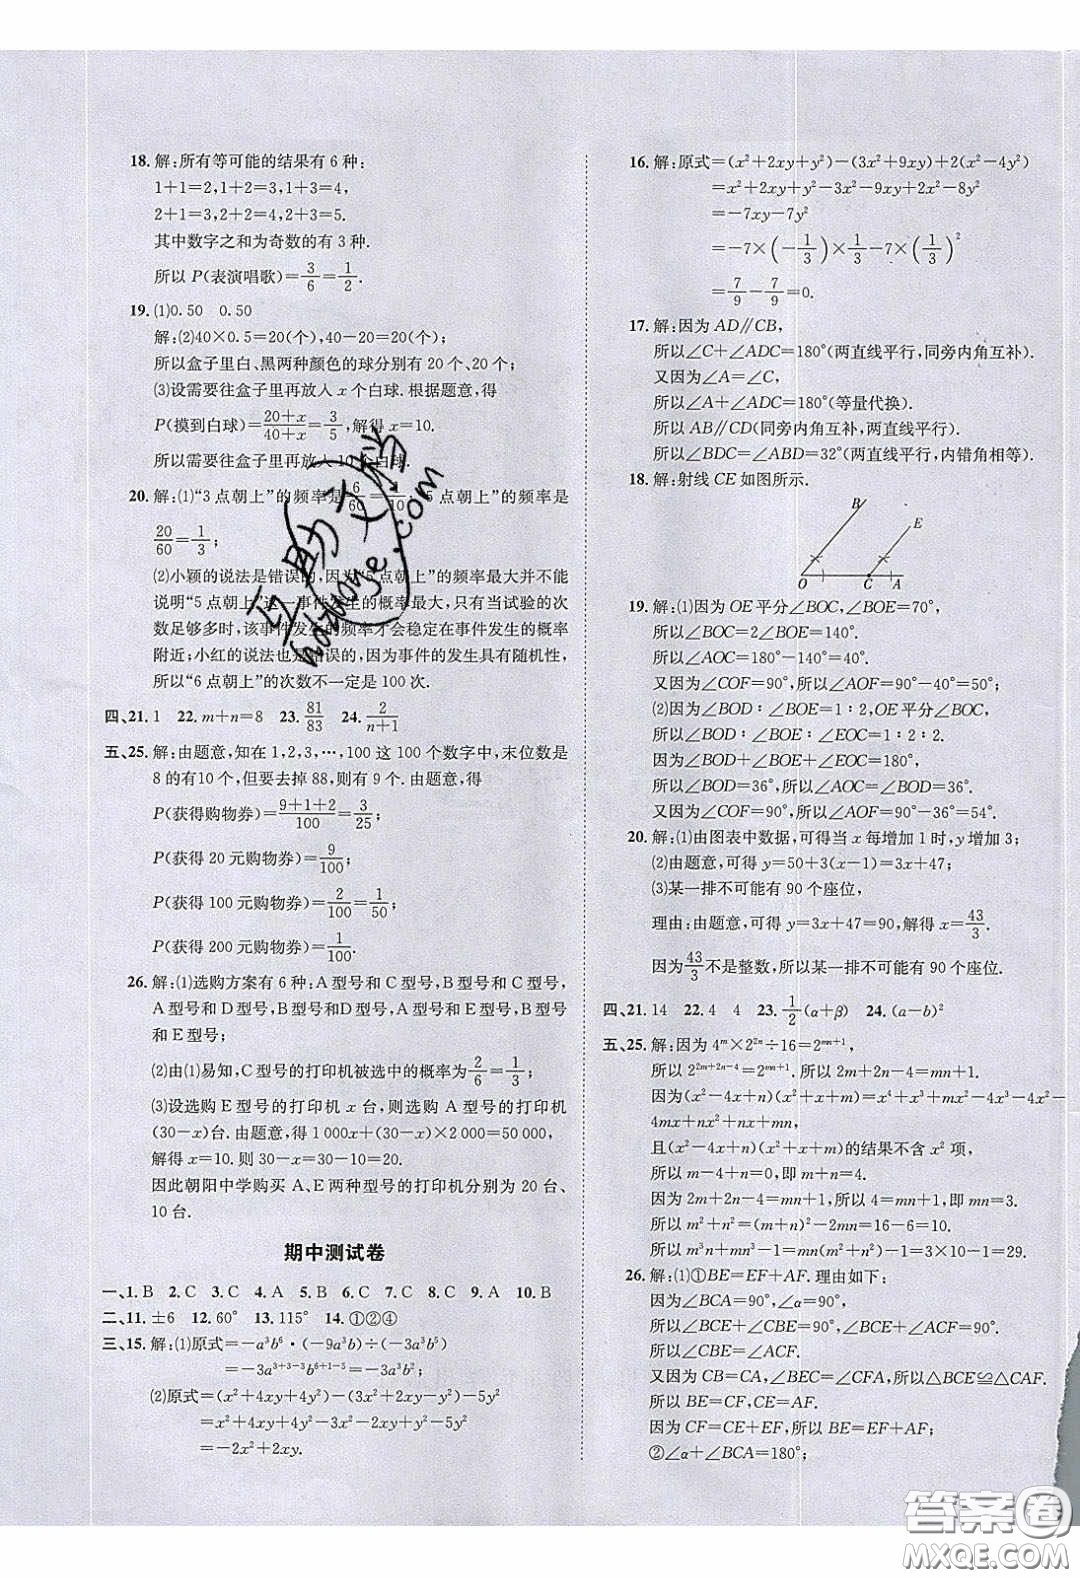 18. 解:所有等可能的结果有6种:
1+1=2,1+2=3,1+3=4,
2+1=3,2+2=4,2+3=5.
其中数字之和为奇数的有3种.
所以P(表演唱歌)=3/6=1/2.
19. (1)0.50 0.50
解:(2)40×0.5=20(个),40-20=20(个);
所以盒子里白、黑两种颜色的球分别有20个、20个;
(3)设需要往盒子里再放入x个白球.根据题意,得
P(摸到白球)=(20+x)/(40+x)=3/5,解得x=10.
所以需要往盒子里再放入10个白球.
20. 解:(1)“3点朝上”的频率是6/60=1/10,“5点朝上”的频率是
20/60=1/3;
(2)小颖的说法是错误的,因为“5点朝上”的频率最大并不能
说明“5点朝上”这一事件发生的概率最大,只有当试验的次
数足够多时,该事件发生的频率才会稳定在事件发生的概率
附近;小红的说法也是错误的,因为事件的发生具有随机性,
所以“6点朝上”的次数不一定是100次.
四、21. 1 22. m+n=8 23. 81/83 24. 2/(n+1)
五、25. 解:由题意,知在1,2,3,…,100这100个数字中,末位数是
8的有10个,但要去掉88,则有9个.由题意,得
P(获得购物券)=(9+1+2)/100=3/25;
P(获得20元购物券)=9/100;
P(获得100元购物券)=2/100=1/50;
P(获得200元购物券)=1/100.
26. 解:(1)选购方案有6种:A型号和C型号,B型号和C型号,
A型号和D型号,B型号和D型号,A型号和E型号,B型号
和E型号;
(2)由(1)易知,C型号的打印机被选中的概率为2/6=1/3;
(3)设选购E型号的打印机x台,则选购A型号的打印机
(30-x)台.由题意,得1 000x+(30-x)×2 000=50 000,
解得x=10.则30-x=30-10=20.
因此朝阳中学购买A、E两种型号的打印机分别为20台、
10台.
期中测试卷
一、1. B 2. C 3. C 4. A 5. B 6. C 7. C 8. C 9. A 10. B
二、11. ±6 12. 60° 13. 115° 14. ①②④
三、15. 解:(1)原式=-a³b⁶·(-9a³b)÷(-3a³b⁵)
=-3a³⁺³⁻³b⁶⁺¹⁻⁵=-3a³b².
(2)原式=(x²+4xy+4y²)-(3x²+2xy-y²)-5y²
=x²+4xy+4y²-3x²-2xy+y²-5y²
=-2x²+2xy.
16. 解:原式=(x²+2xy+y²)-(3x²+9xy)+2(x²-4y²)
=x²+2xy+y²-3x²-9xy+2x²-8y²
=-7xy-7y²
=-7×(-1/3)×1/3-7×(1/3)²
=7/9-7/9=0.
17. 解:因为AD∥CB,
所以∠C+∠ADC=180°(两直线平行,同旁内角互补).
又因为∠A=∠C,
所以∠A+∠ADC=180°(等量代换).
所以AB∥CD(同旁内角互补,两直线平行).
所以∠BDC=∠ABD=32°(两直线平行,内错角相等).
18. 解:射线CE如图所示.
B
E
O C A
19. 解:(1)因为OE平分∠BOC,∠BOE=70°,
所以∠BOC=2∠BOE=140°.
所以∠AOC=180°-140°=40°.
又因为∠COF=90°,所以∠AOF=90°-40°=50°;
(2)因为∠BOD∶∠BOE=1∶2,OE平分∠BOC,
所以∠BOD∶∠BOE∶∠EOC=1∶2∶2.
因为∠BOD+∠BOE+∠EOC=180°,
所以∠BOD=36°,所以∠AOC=∠BOD=36°.
又因为∠COF=90°,所以∠AOF=90°-36°=54°.
20. 解:(1)由图表中数据,可得当x每增加1时,y增加3;
(2)由题意,可得y=50+3(x-1)=3x+47;
(3)某一排不可能有90个座位,
理由:由题意,可得y=3x+47=90,解得x=43/3.
因为43/3不是整数,所以某一排不可能有90个座位.
四、21. 14 22. 4 4 23. 1/2(α+β) 24. (a-b)²
五、25. 解:因为4ᵐ×2²ⁿ÷16=2ᵐⁿ⁺¹,
所以2²ᵐ⁺²ⁿ⁻⁴=2ᵐⁿ⁺¹.所以2m+2n-4=mn+1.
因为(x²-4x+n)(x²+x+m)=x⁴+x³+mx²-4x³-4x²-
4mx+nx²+nx+mn,
且(x²-4x+n)(x²+x+m)的结果不含x²项,
所以m-4+n=0,即m+n=4.
因为2m+2n-4=mn+1,所以4=mn+1,即mn=3.
所以m²+n²=(m+n)²-2mn=16-6=10.
所以m³n+mn³+1=mn(m²+n²)-1=3×10-1=29.
26. 解:(1)①BE=EF+AF.理由如下:
因为∠BCA=90°,∠α=90°,
所以∠BCE+∠CBE=∠BCE+∠ACF=90°.
所以∠CBE=∠ACF.
又因为CB=CA,∠BEC=∠CFA,所以△BCE≌△CAF.
所以BE=CF,CE=AF.
因为CF=CE+EF,所以BE=EF+AF;
②∠α+∠BCA=180°;
互助文档
hdzuoye.com
答案卷
MXQE.COM